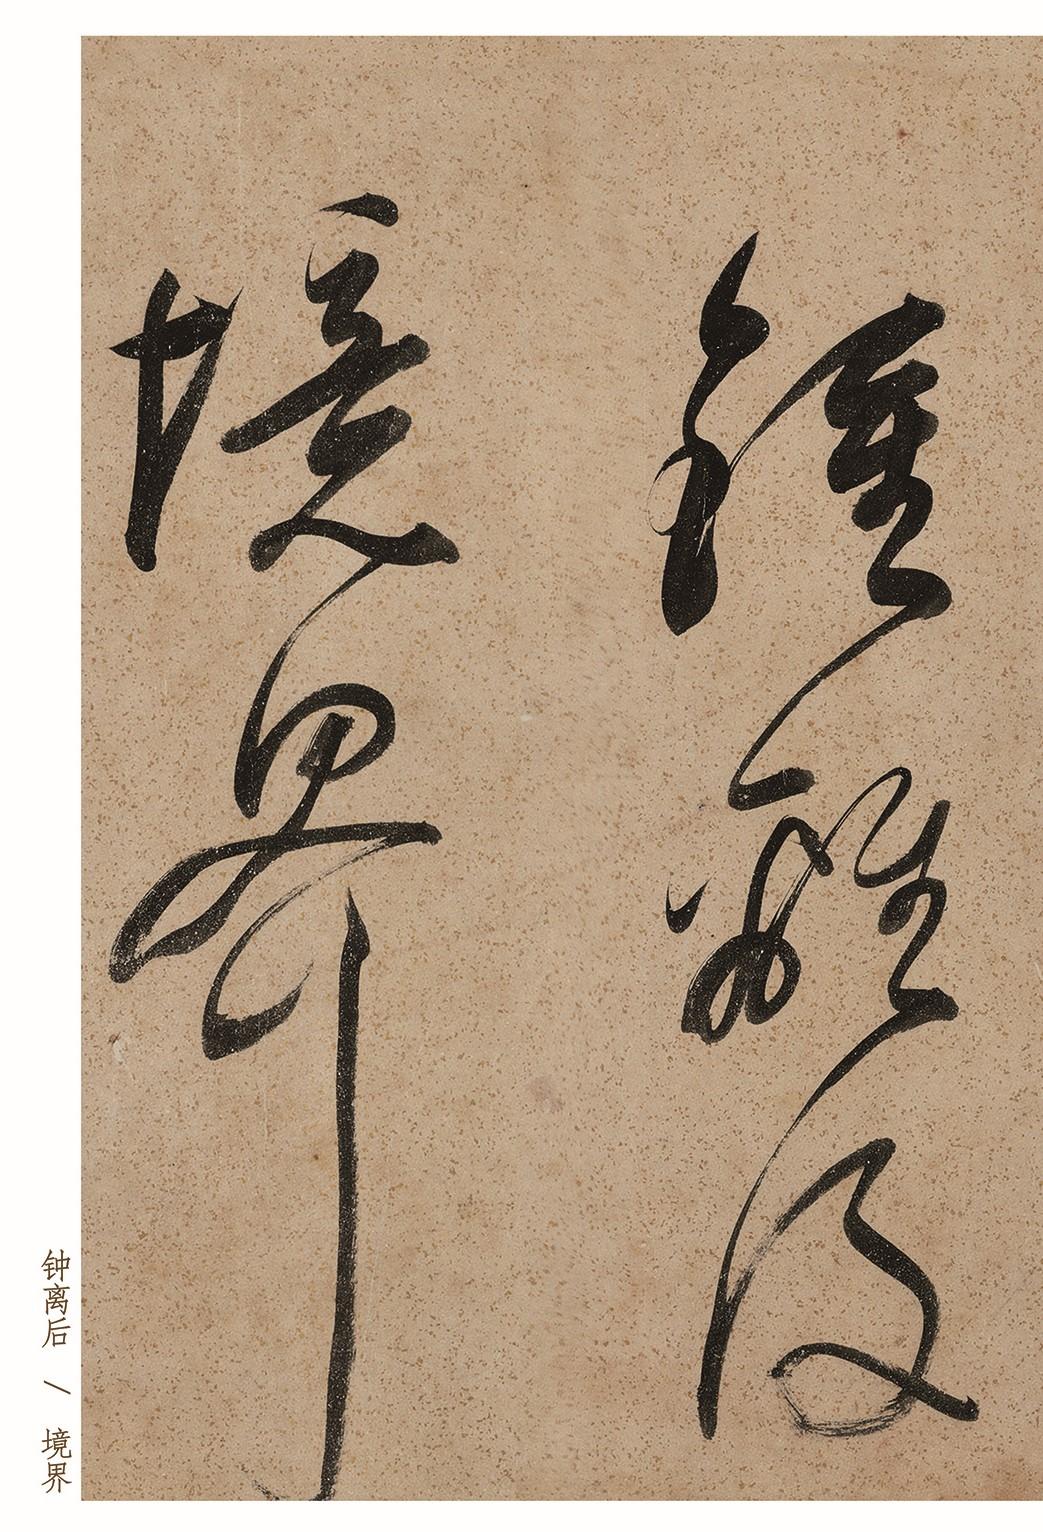 鍾離後
境界
钟离后 / 境界